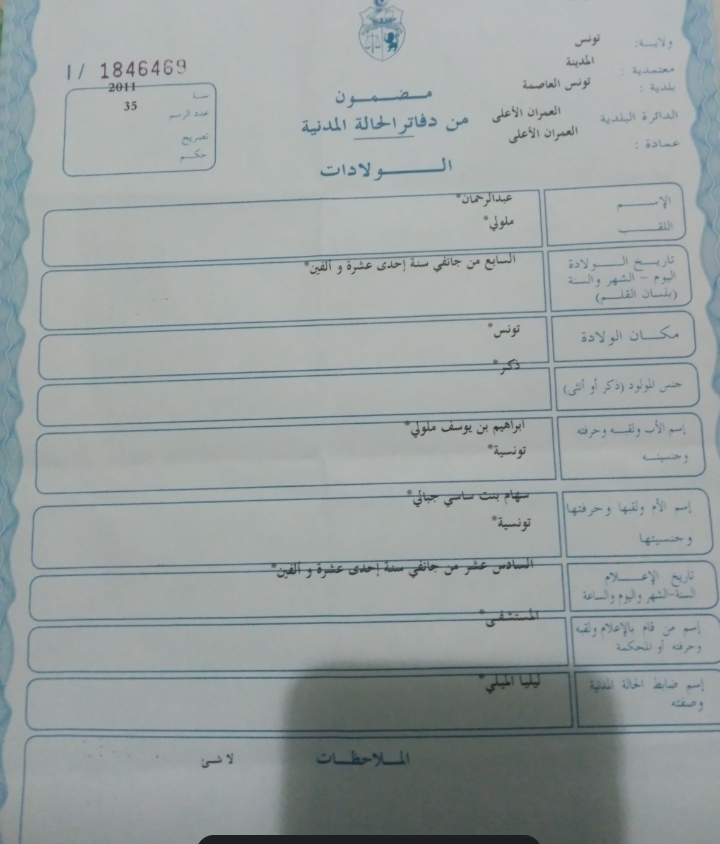 ولايـة: تونس
معتمدية : المدينة
بلدية : تونس العاصمة
الدائرة البلدية العمران الأعلى
عمادة : العمران الأعلى
I/ 1846469
سنة 2011
عدد الرسم 35
تصريح
حكـم
مـضـمـون
من دفاتر الحالة المدنية
الـولادات
الإسـم عبدالرحمان*
اللقـب ملولي*
تاريـخ الـولادة السابع من جانفي سنة إحدى عشرة و ألفين*
اليوم - الشهر والسنة
(بلسان القلـم)
مكـان الولادة تونس*
جنس المولود (ذكر أو أنثى) ذكر*
إسم الأب ولقبـه وحرفته ابراهيم بن يوسف ملولي*
وجنسيتـه تونسية*
إسم الأم ولقبها وحرفتها سهام بنت ساسي جبالي*
وجنسيتها تونسية*
تاريخ الإعـلام السادس عشر من جانفي سنة إحدى عشرة و ألفين*
السنة-الشهر واليوم والساعة
إسم من قام بالإعلام ولقبه المستشفى*
وحرفته أو المحكمة
إسم ضابط الحالة المدنية ليليا الميلي*
وصفته
الملاحظـات لا شئ